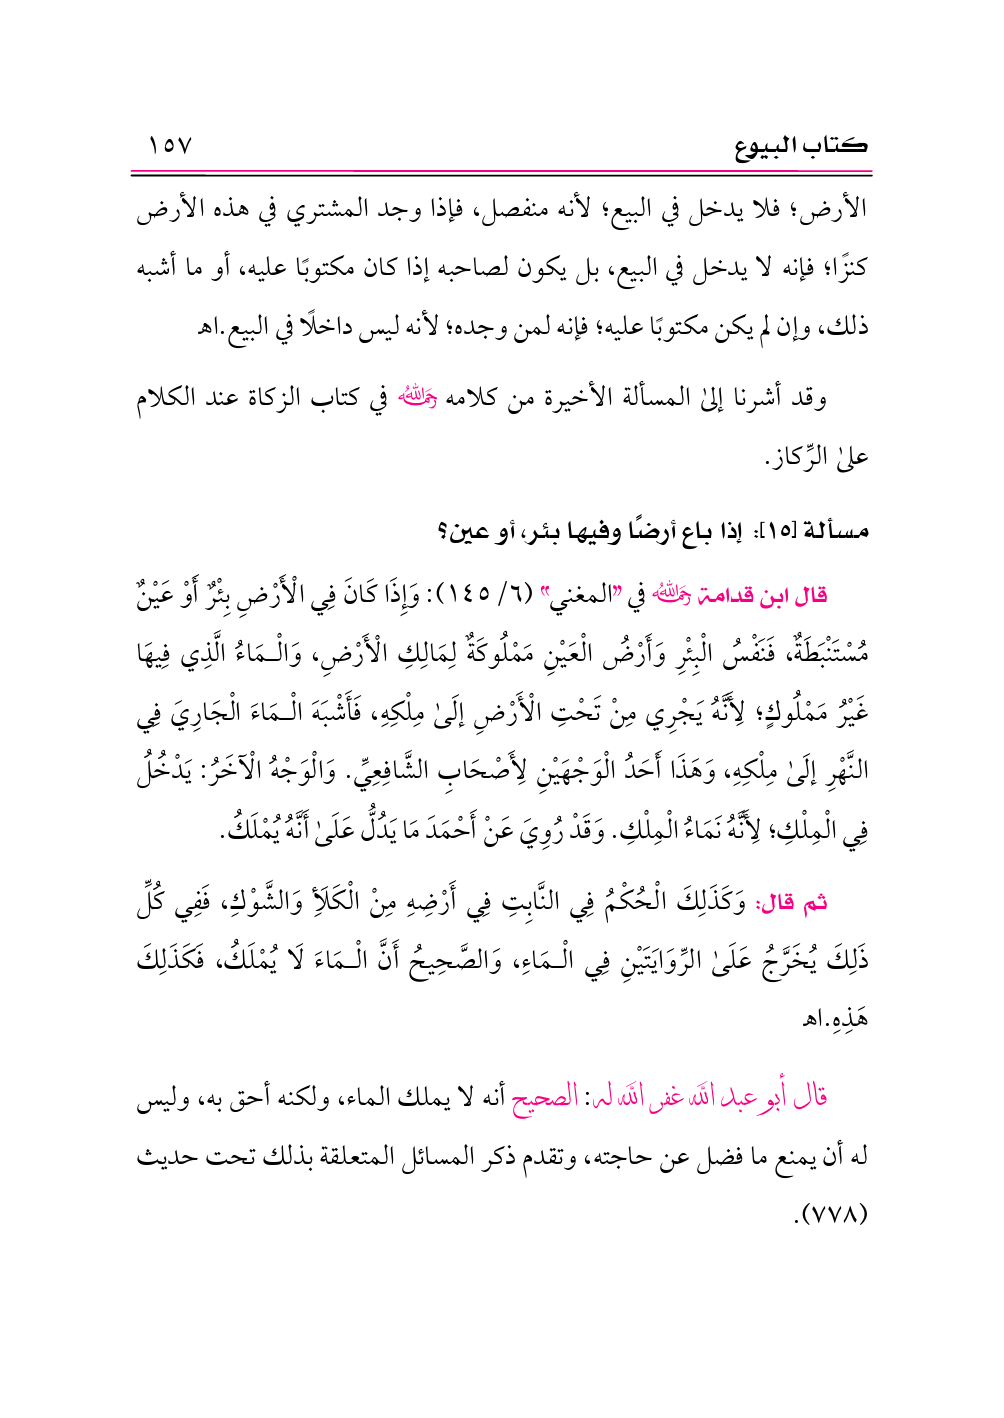 كتاب البيوع ١٥٧
الأرض؛ فلا يدخل في البيع؛ لأنه منفصل، فإذا وجد المشتري في هذه الأرض
كنزًا؛ فإنه لا يدخل في البيع، بل يكون لصاحبه إذا كان مكتوبًا عليه، أو ما أشبه
ذلك، وإن لم يكن مكتوبًا عليه؛ فإنه لمن وجده؛ لأنه ليس داخلًا في البيع.اهـ
وقد أشرنا إلىٰ المسألة الأخيرة من كلامه رحمه الله في كتاب الزكاة عند الكلام
علىٰ الرِّكاز.
مسألة [١٥]: إذا باع أرضًا وفيها بئر، أو عين؟
قال ابن قدامة رحمه الله في "المغني" (٦/ ١٤٥): وَإِذَا كَانَ فِي الْأَرْضِ بِئْرٌ أَوْ عَيْنٌ
مُسْتَنْبَطَةٌ، فَنَفْسُ الْبِئْرِ وَأَرْضُ الْعَيْنِ مَمْلُوكَةٌ لِمَالِكِ الْأَرْضِ، وَالْـمَاءُ الَّذِي فِيهَا
غَيْرُ مَمْلُوكٍ؛ لِأَنَّهُ يَجْرِي مِنْ تَحْتِ الْأَرْضِ إلَىٰ مِلْكِهِ، فَأَشْبَهَ الْـمَاءَ الْجَارِيَ فِي
النَّهْرِ إلَىٰ مِلْكِهِ، وَهَذَا أَحَدُ الْوَجْهَيْنِ لِأَصْحَابِ الشَّافِعِيِّ. وَالْوَجْهُ الْآخَرُ: يَدْخُلُ
فِي الْمِلْكِ؛ لِأَنَّهُ نَمَاءُ الْمِلْكِ. وَقَدْ رُوِيَ عَنْ أَحْمَدَ مَا يَدُلُّ عَلَىٰ أَنَّهُ يُمْلَكُ.
ثم قال: وَكَذَلِكَ الْحُكْمُ فِي النَّابِتِ فِي أَرْضِهِ مِنْ الْكَلَأِ وَالشَّوْكِ، فَفِي كُلِّ
ذَلِكَ يُخَرَّجُ عَلَىٰ الرِّوَايَتَيْنِ فِي الْـمَاءِ، وَالصَّحِيحُ أَنَّ الْـمَاءَ لَا يُمْلَكُ، فَكَذَلِكَ
هَذِهِ.اهـ
قال أبو عبد الله غفر الله له: الصحيح أنه لا يملك الماء، ولكنه أحق به، وليس
له أن يمنع ما فضل عن حاجته، وتقدم ذكر المسائل المتعلقة بذلك تحت حديث
(٧٧٨).